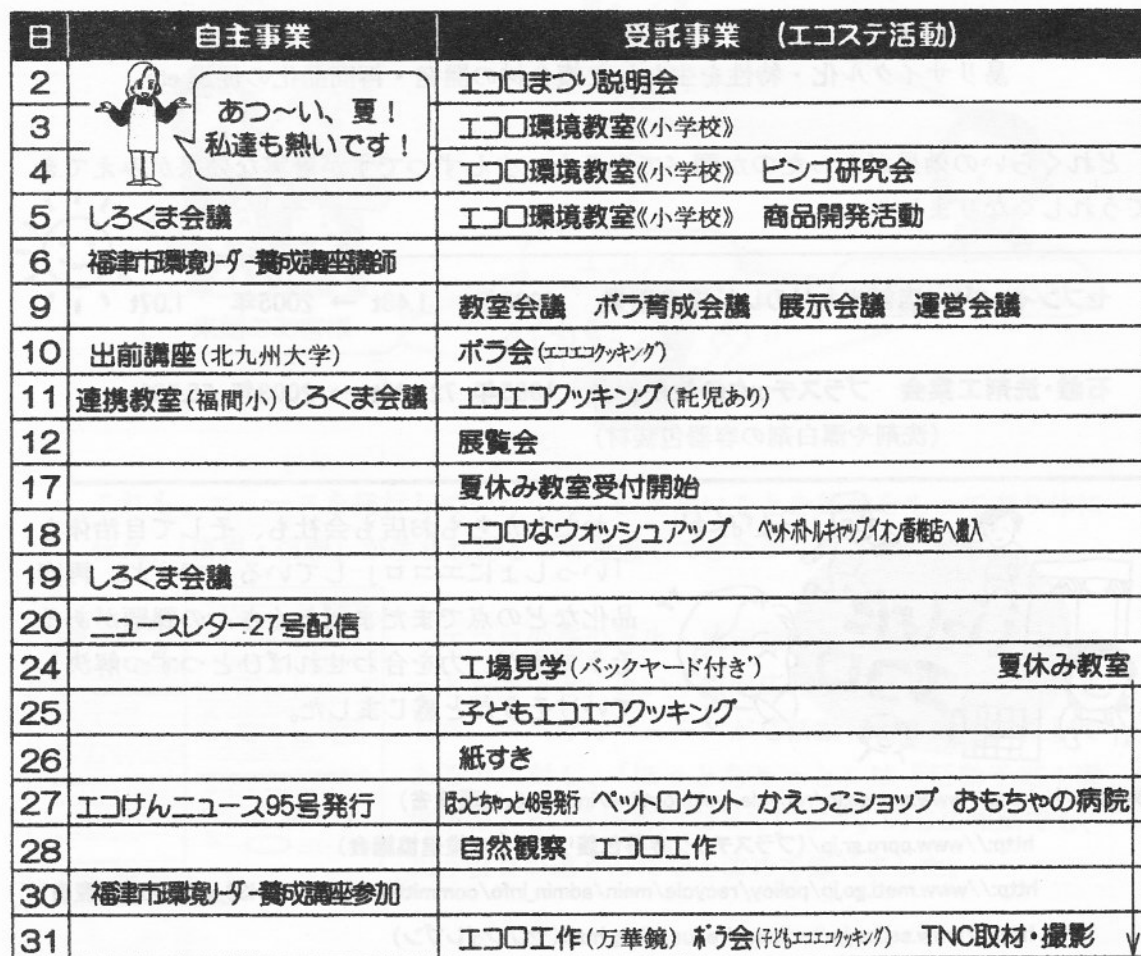 日 自主事業 受託事業 (エコステ活動)
あつ～い、夏！
私達も熱いです！
2 エコロまつり説明会
3 エコロ環境教室《小学校》
4 エコロ環境教室《小学校》 ヒシゴ研究会
5 しろくま会議 エコロ環境教室《小学校》 商品開発活動
6 福津市環境リーダー養成講座講師
9 教室会議 ボラ育成会議 展示会議 運営会議
10 出前講座(北九州大学) ボラ会(エコエコクッキング)
11 連携教室(福間小)しろくま会議 エコエコクッキング(託児あり)
12 展覧会
17 夏休み教室受付開始
18 エコロなウォッシュアップ ペットボトルキャップイオン香椎店へ搬入
19 しろくま会議
20 ニュースレター27号配信
24 工場見学(バックヤード付き) 夏休み教室
25 子どもエコエコクッキング
26 紙すき
27 エコけんニュース95号発行 ほっとちゃっと48号発行 ペットロケット かえっこショップ おもちゃの病院
28 自然観察 エコロ工作
30 福津市環境リーダー養成講座参加
31 エコロ工作(万華鏡) ボラ会(子どもエコエコクッキング) TNC取材・撮影